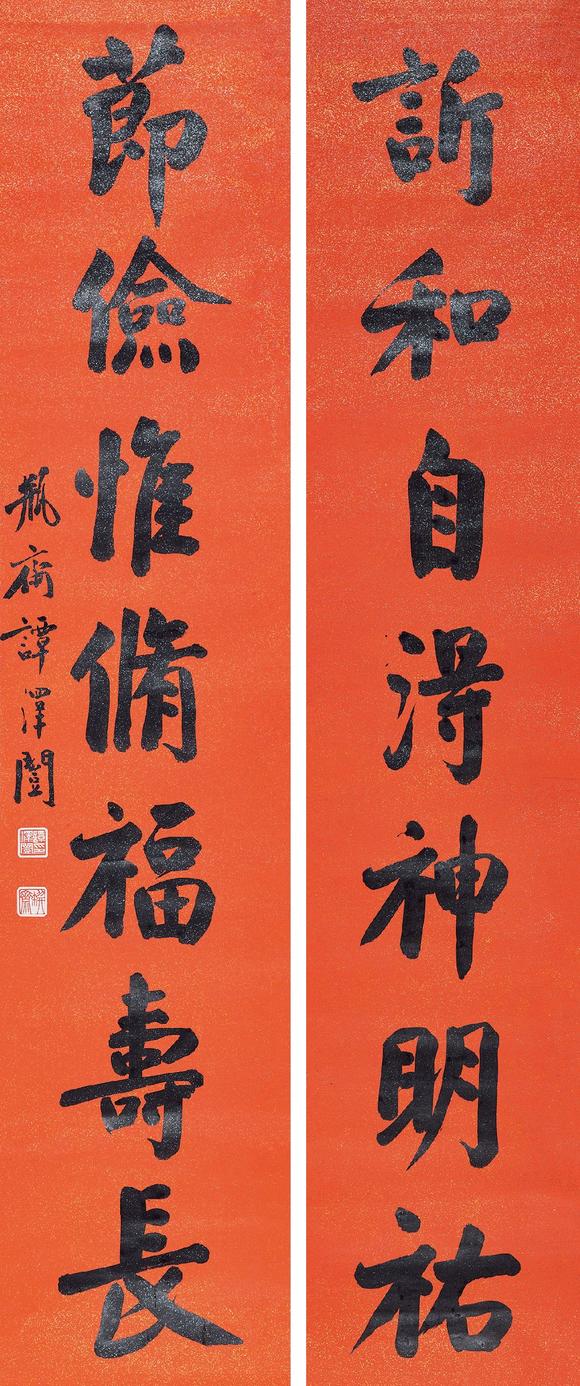 訢和自淂神明祐
莭儉惟脩福壽長
瓶齋譚澤闓